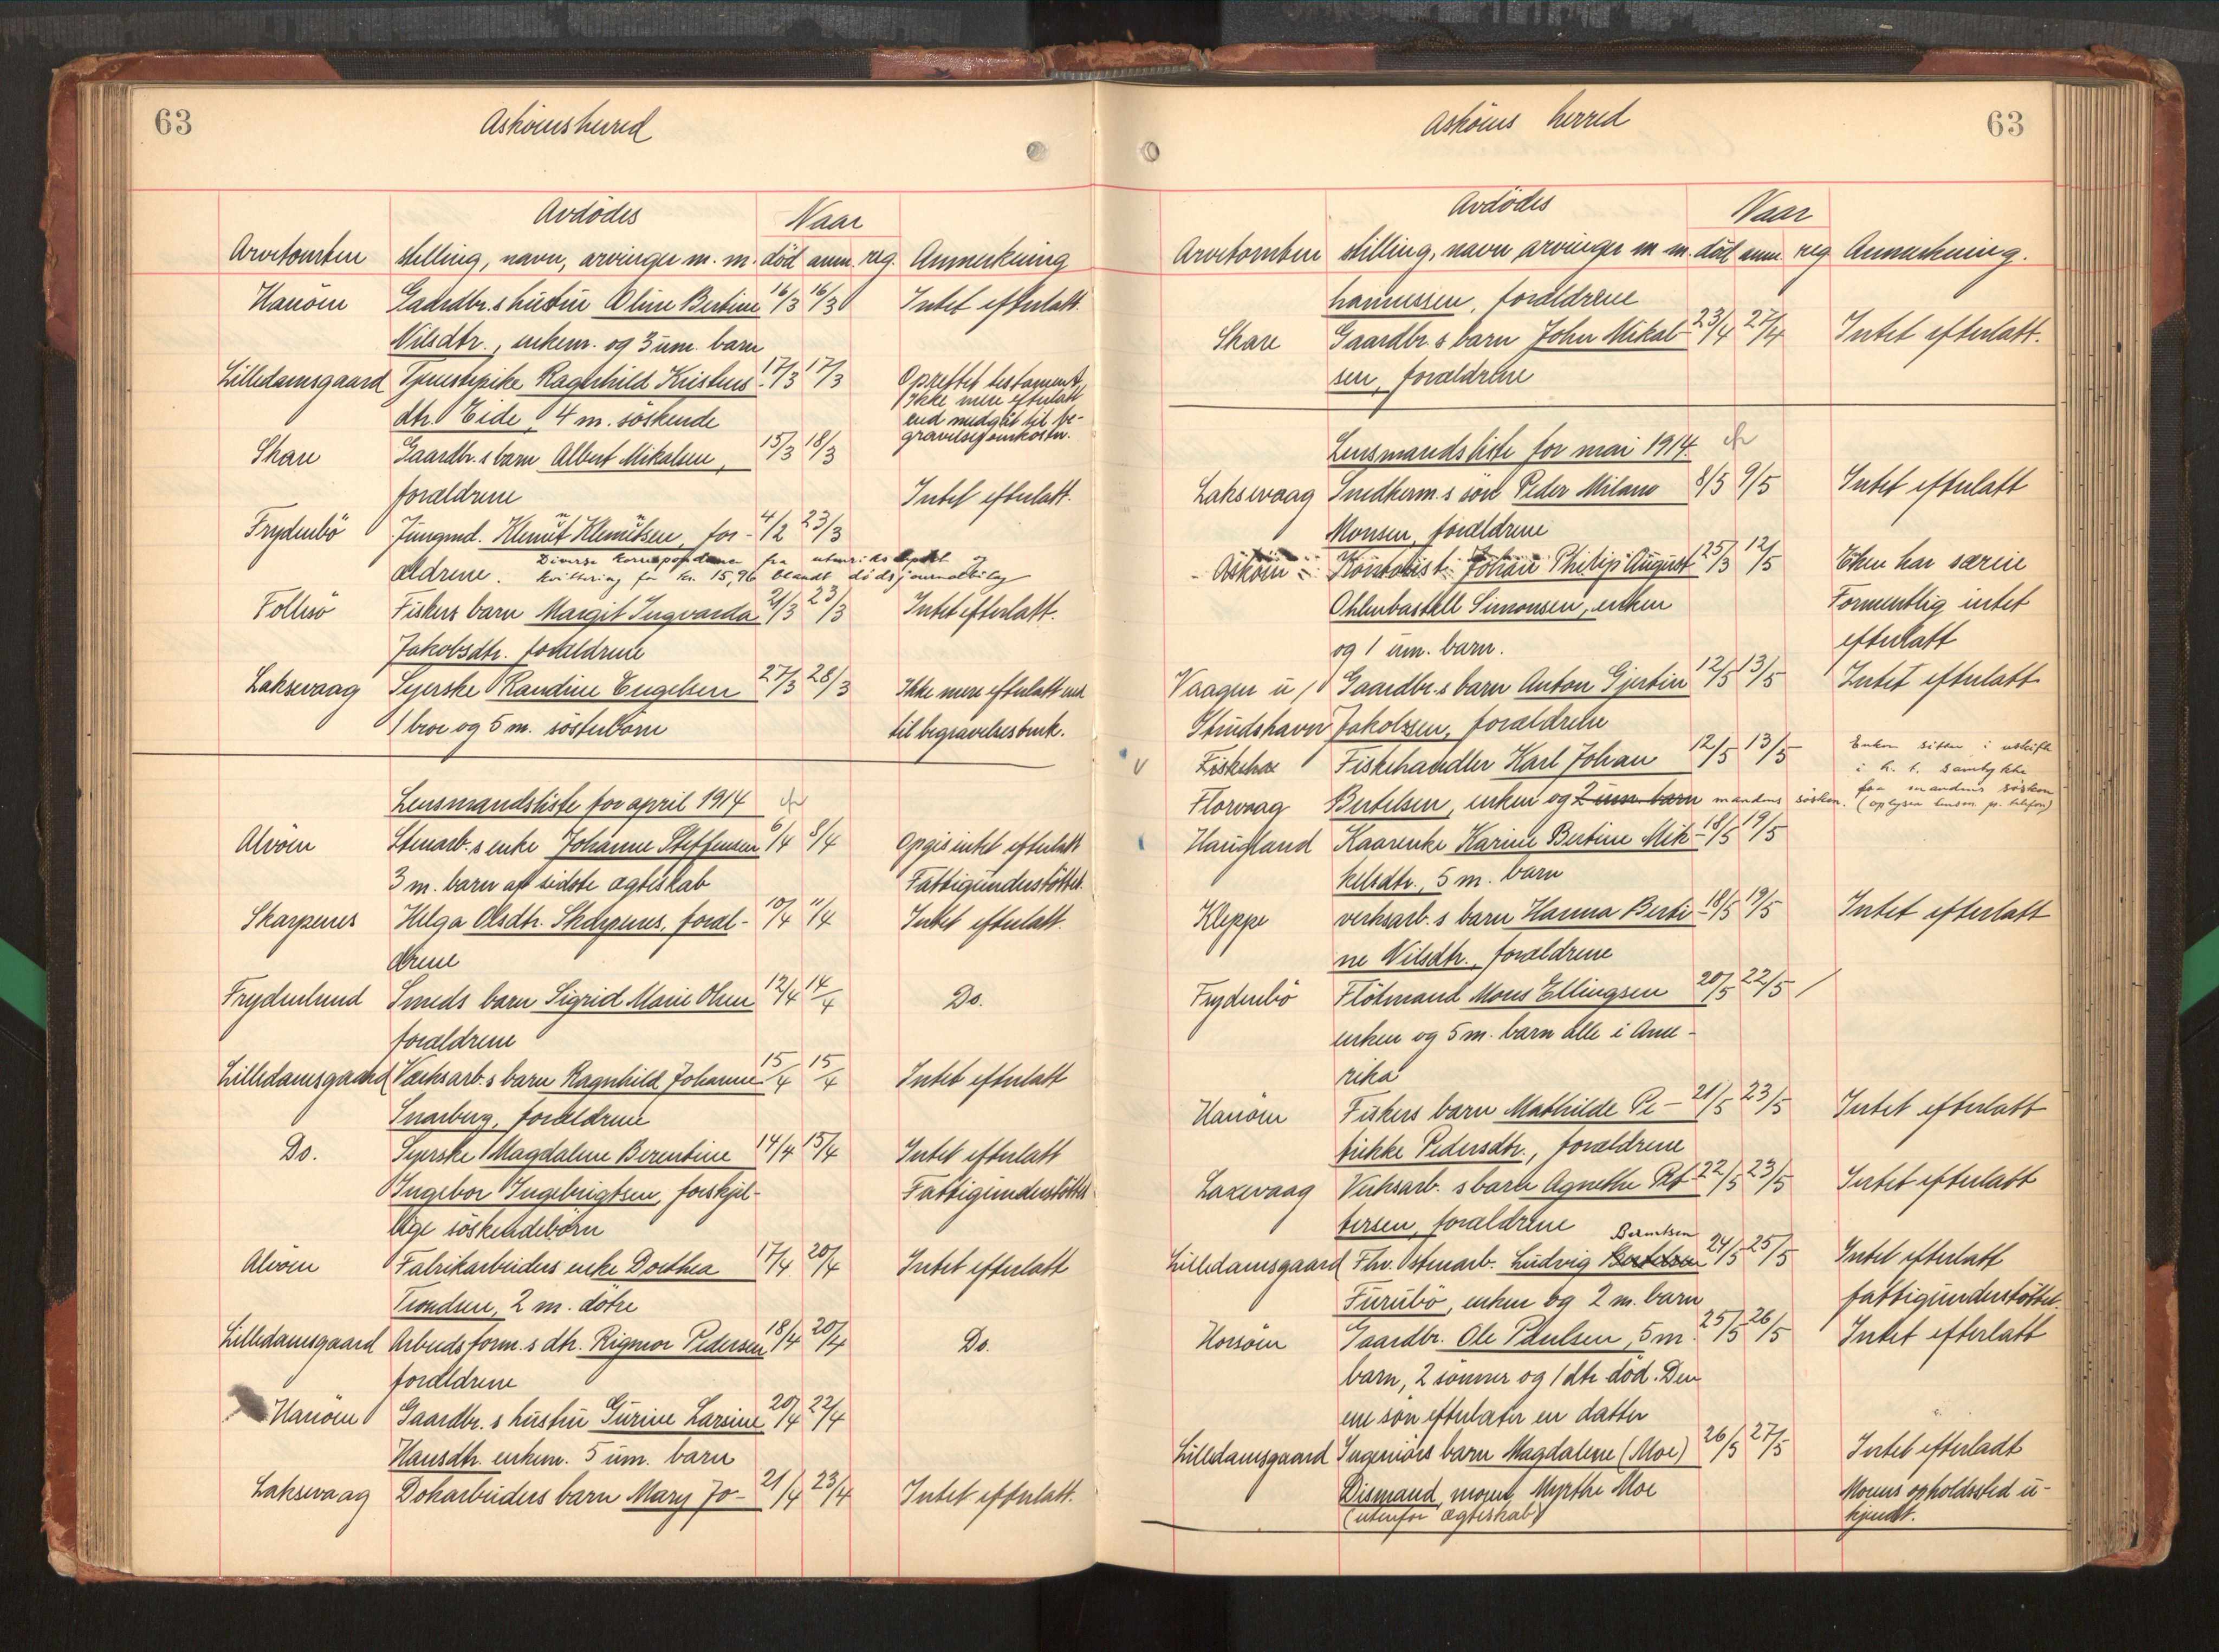 63
Askøens herred
Avdødes
Naar
Arvetomten stilling, navn, arvinger m. m. død anm. reg. Anmerkning
Hanøen Gaardbr.s hustru Oline Bertine 16/3 16/3 Intet efterlatt.
Nilsdtr., enkem. og 3 um. barn
Lilledamsgaard Tjenestepike Ragnhild Kristens- 17/3 17/3 Oprettet testament,
ikke mere efterlatt
dtr. Eide, 4 m. søskende
end medgåt til be-
gravelsesomkostn.
Skare Gaardbr.s barn Albert Mikalsen, 15/3 18/3
forældrene Intet efterlatt.
Frydenbø Jungmd. Klemet Klemetsen, for- 4/2 23/3
ældrene. Diverse korrespondance fra utenriksdeptet og
kvittering for kr. 15,96 blandt dødsjournalbilag
Follesø Fiskers barn Margit Ingvarda 21/3 23/3 Intet efterlatt.
Jakobsdtr. forældrene
Laksevaag Syerske Randine Engelsen 27/3 28/3 Ikke mere efterlatt end
1 bror og 5 m. søsterbørn til begravelsesbruk.
Lensmandsliste for april 1914
Alvøen Stenarb.s enke Johanne Steffensen 6/4 8/4 Opgis intet efterlatt
3 m. barn af sidste ægteskab Fattigunderstøttet.
Skarpenes Helga Olsdtr. Skarpenes, foræl- 10/4 11/4 Intet efterlatt.
drene
Frydenlund Smeds barn Sigrid Marie Olsen 12/4 14/4 Do.
forældrene
Lilledamsgaard Verksarb.s barn Ragnhild Johanne 15/4 15/4 Intet efterlatt
Snarberg, forældrene
Do. Syerske Magdalene Berentine 14/4 15/4 Intet efterlatt
Ingebor Ingebrigtsen, forskjel- Fattigunderstøttet
lige søskendebørn
Alvøen Fabrikarbeiders enke Dorthea 17/4 20/4 Intet efterlatt
Trondsen, 2 m. døtre
Lilledamsgaard Arbeidsform.s dtr. Rigmor Pedersen 18/4 20/4 Do.
forældrene
Hanøen Gaardbr.s hustru Gurine Larsine 20/4 22/4
Hansdtr. enkem. 5 um. barn
Laksevaag Dokarbeiders barn Mary Jo- 21/4 23/4 Intet efterlatt.
63
Askøens herred
Avdødes
Naar
Arvetomten stilling, navn arvinger m m. død anm. reg Anmerkning.
hannessen, forældrene
Skare Gaardbr.s barn John Mikal- 23/4 27/4 Intet efterlatt.
sen, forældrene
Lensmandsliste for mai 1914
Laksevaag Snedkerm.s søn Peder Milano 8/5 9/5 Intet efterlatt
Monsen, forældrene
Askøen Kontorist Johan Philip August 25/3 12/5 Enken har særeie
Ohlenbastell Simonsen, enken Formentlig intet
og 1 um. barn. efterlatt
Vaagen u/ Gaardbr.s barn Anton Gjertin 12/5 13/5 Intet efterlatt
Strudshavn Jakobsen, forældrene
Fiskeha Fiskehandler Karl Johan 12/5 13/5 Enken sitter i uskifte
i h. t. samtykke
Florvaag Bertelsen, enken og 2 um. barn mandens søsken. fra mandens søsken
(oplyser lensm. pr. telefon)
Haugland Kaarenke Karine Bertine Mik- 18/5 19/5
kelsdtr., 5 m. barn
Kleppe verksarb.s barn Hanna Berti- 18/5 19/5 Intet efterlatt
ne Nilsdtr., forældrene
Frydenbø Flötmand Mons Ellingsen 20/5 22/5 /
enken og 5 m. barn alle i Ame-
rika
Hanøen Fiskers barn Mathilde Pe- 21/5 23/5 Intet efterlatt
trikke Pedersdtr., forældrene
Laxevaag Verksarb.s barn Agnethe Pet- 22/5 23/5 Intet efterlatt
tersen, forældrene
Berntsen
Lilledamsgaard Fhv. stenarb. Ludvig Bertelsen 24/5 25/5 Intet efterlatt
Furubø, enken og 2 m. barn fattigunderstøttet.
Horsøen Gaardbr. Ole Paulsen, 5 m. 25/5 26/5 Intet efterlatt
barn, 2 sønner og 1 dtr død. Den
ene søn efterlater en datter
Lilledamsgaard Ingeniørs barn Magdalene (Moe) 26/5 27/5 Intet efterladt
Dismand, moren Myrthe Moe Morens opholdssted u-
(utenfor ægteskab) kjendt.